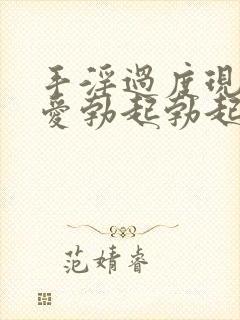 手淫過度現
愛勃起勃起
范婧睿